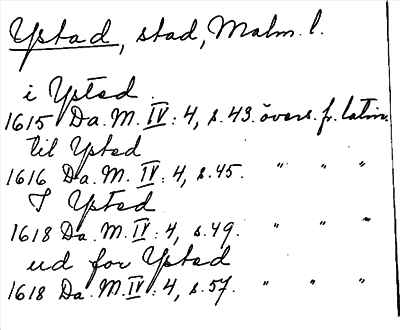 Ystad, stad, Malm. l.
i Ysted
1615 Da. M. IV: 4, s. 43. övers. fr. latin.
til Ysted
1616 Da. M. IV: 4, s. 45. " " "
I Ysted
1618 Da. M. IV: 4, s. 49. " " "
ud for Ysted
1618 Da. M. IV: 4, s. 57. " " "